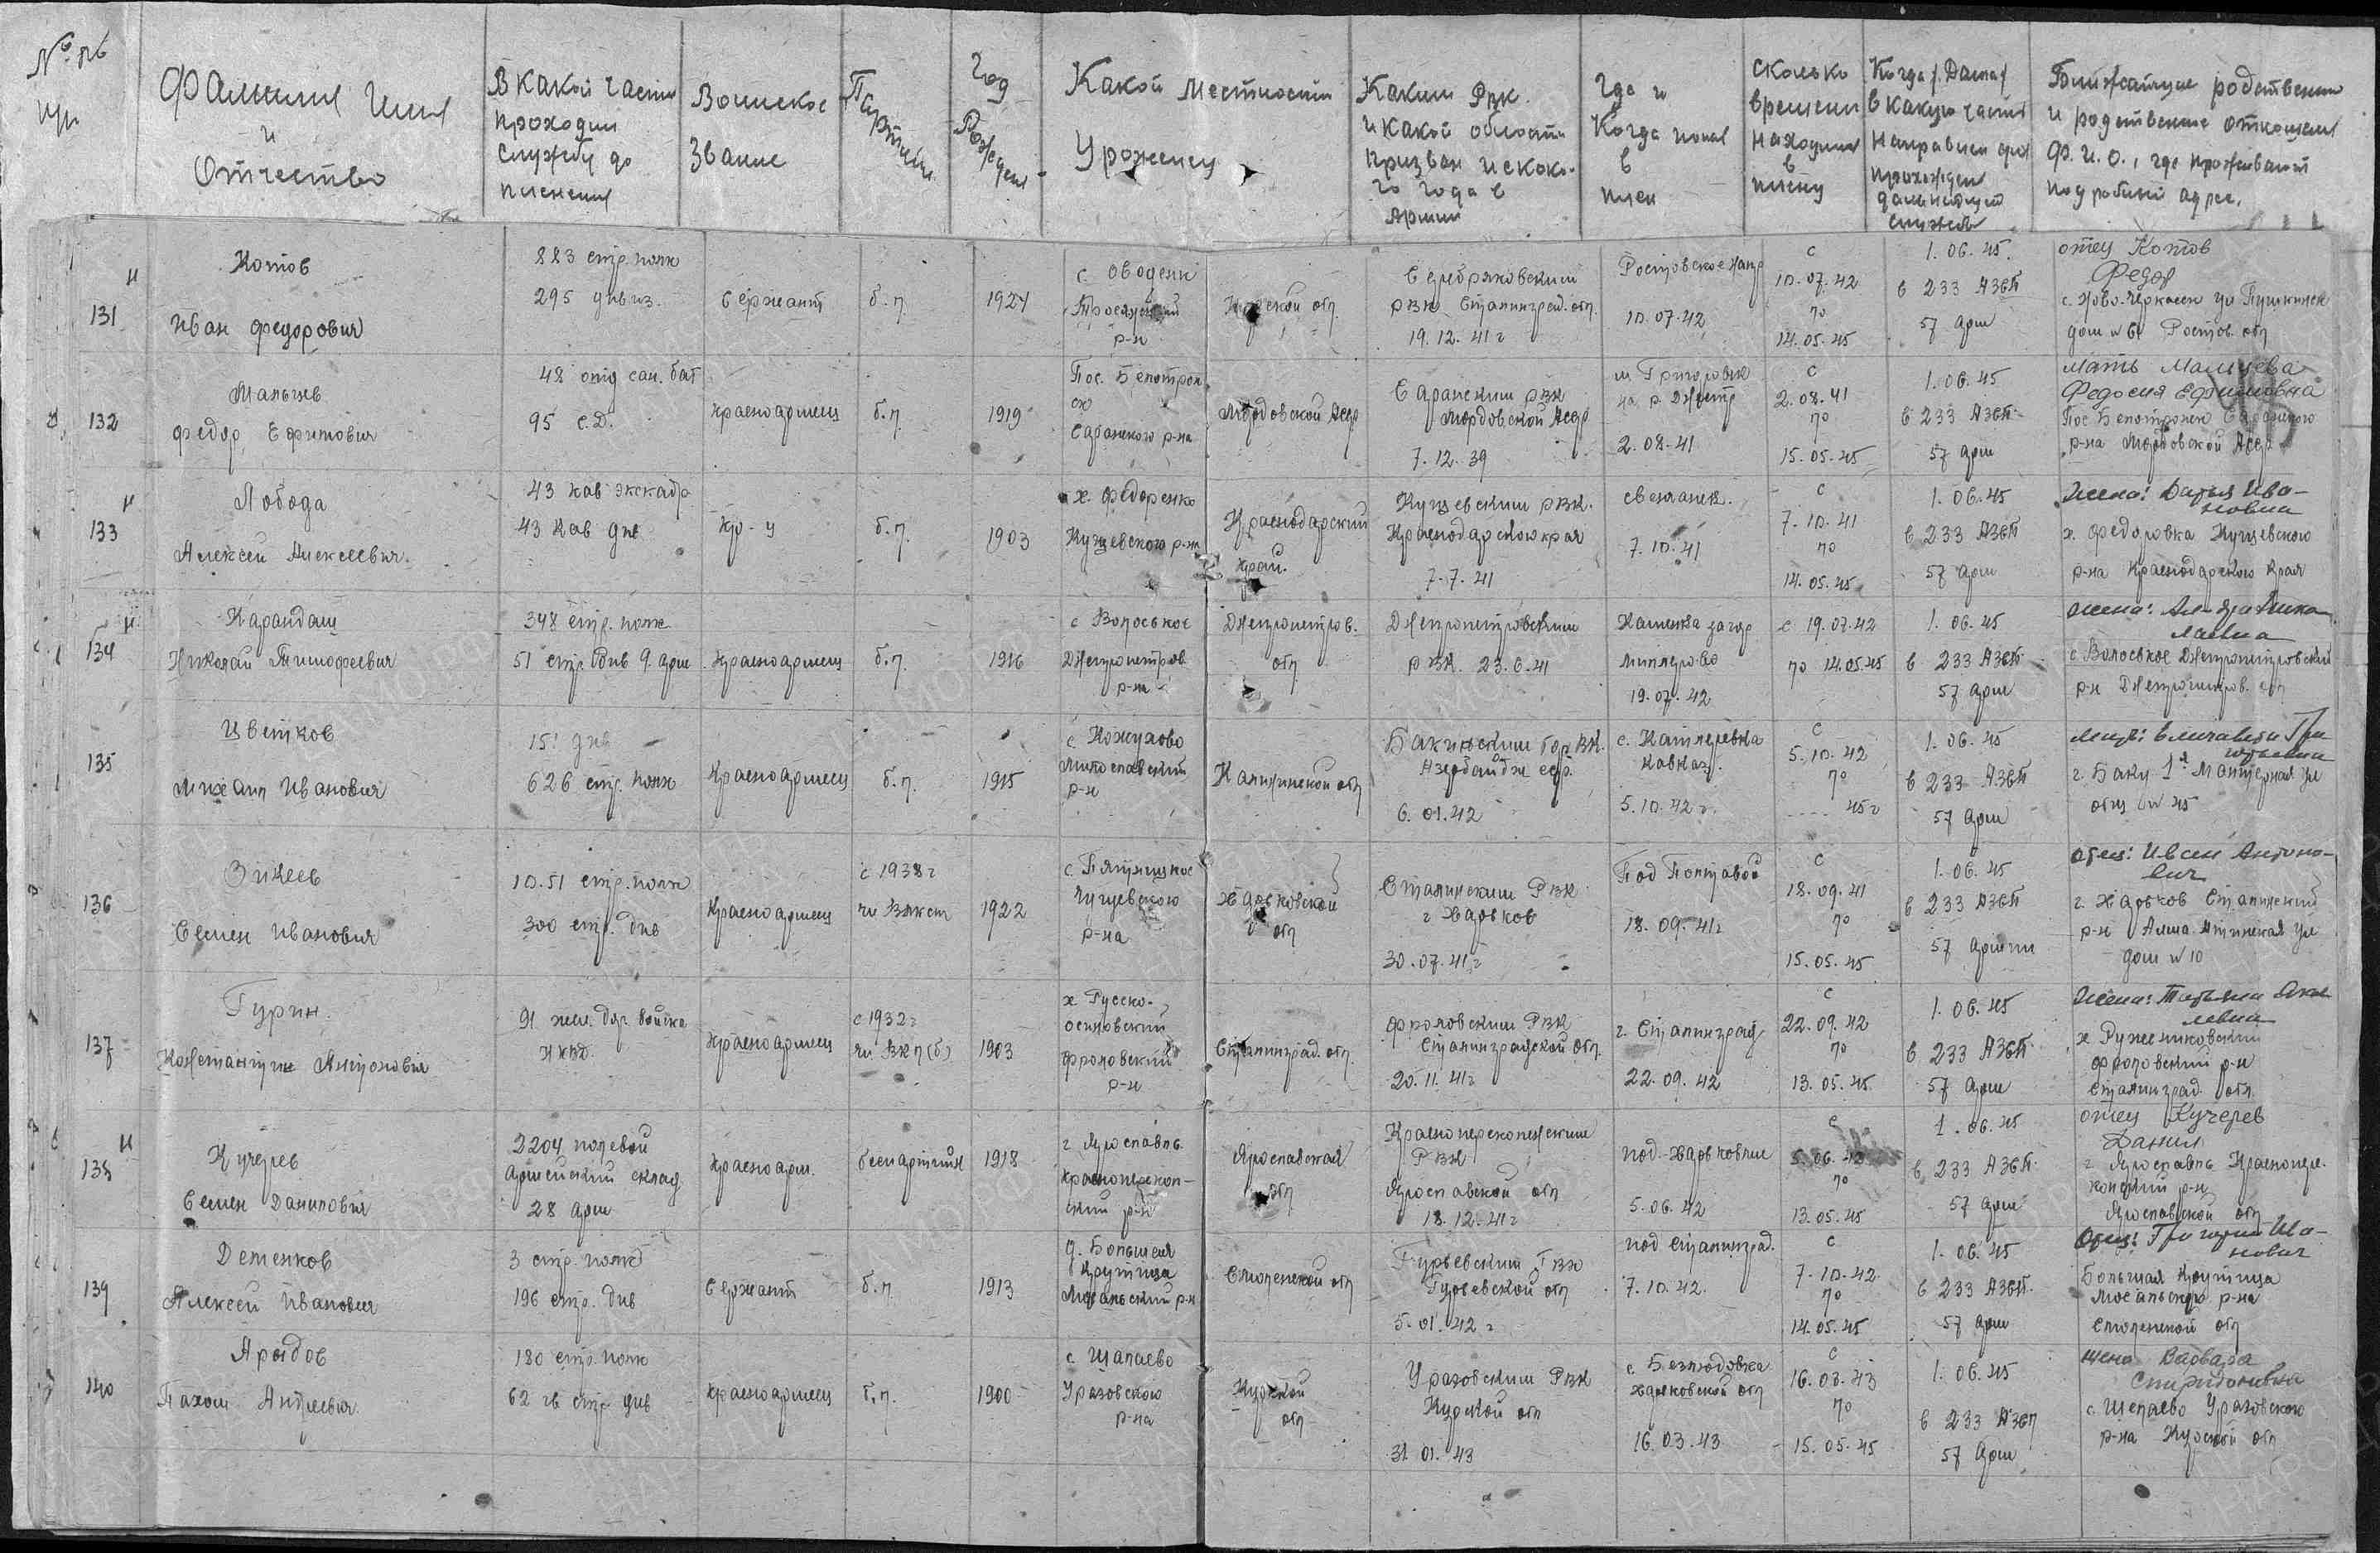 № пр
Фамилия Имя
и
Отчество
В какой части
проходил
службу до
пленения
Воинское
звание
Партийн
Год
Рожден
Какой местности
Уроженец
Каким РВК
и какой области
призван и с како-
го года в
армии
Где и
Когда попал
в
плен
Сколько
времени
находился
в
плену
Когда
в какую часть
направлен для
прохожден
дальнейшей
службы
Ближайшие родственни
и родственные отношения
Ф.И.О., где проживают
подробный адрес.
131
Котов
Иван Федорович
883 стр. полк
295 див из.
Сержант
б.п.
1924
р-н
обл.
РВК Сталинград. обл.
19.12.41 г
Ростовское напр
10.07.42
с
10.07.42
по
14.05.45
1.06.45.
в 233 АЗСП
57 арм
отец Котов
Федор
дом № Ростов. обл
132
Мальцев
Федор Ефимович
48 отд сан. бат
95 с.д.
Красноармеец
б.п.
1919
Саранского р-на
Мордовской АССР
Саранским РВК
Мордовской АССР
7.12.39
2.08.41
с
2.08.41
по
15.05.45
1.06.45
в 233 АЗСП
57 арм
мать Мальцева
Федосия Ефимовна
р-на Мордовской АССР
133
Лобода
Алексей Алексеевич.
43 кав эскадр
43 кав див
кр-ц
б.п.
1903
х. Федоренко
Кущевского р-на
Краснодарский
край.
Кущевским РВК.
Краснодарского края
7.7.41
7.10.41
с
7.10.41
по
14.05.45
1.06.45
в 233 АЗСП
57 арм
Жена: Дарья Ива-
новна
х. Федоровка Кущевского
р-на Краснодарского края
134
Карандаш
Николай Тимофеевич
348 стр. полк
51 стр. див 9 арм
Красноармеец
б.п.
1916
с Волоское
Днепропетров
р-на
Днепропетров.
обл
Днепропетровским
РВК 23.6.41
Миллерово
19.07.42
с 19.07.42
по 14.05.45
1.06.45
в 233 АЗСП
57 арм
Жена:
лаевна
с Волоское Днепропетровский
р-н Днепропетров. обл
135
Цветков
Михаил Иванович
151 див
626 стр. полк
Красноармеец
б.п.
1915
с. Кожухово
р-н
Калининской обл
Бакинским гор ВК.
Азербайдж сср.
6.01.42
Кавказ.
5.10.42 г.
с
5.10.42
по
.... 45 г
1.06.45
в 233 АЗСП
57 арм
г. Баку 1я ул
№ 45
136
Зикеев
Семен Иванович
1051 стр. полк
300 стр. див
Красноармеец
с 1938 г
чл ВЛКСМ
1922
с. Пятницкое
Чугуевского
р-на
Харьковской
обл
Сталинским РВК
г Харьков
30.07.41 г
Под Полтавой
18.09.41 г
с
18.09.41
по
15.05.45
1.06.45
в 233 АЗСП
57 армии
отец: Иван Антоно-
вич
г. Харьков Сталинский
р-н Алма Атинская ул
дом № 10
137
Гурин.
Константин Антонович
91 жел. дор. войска
НКВД.
Красноармеец
с 1932 г
чл ВКП(б)
1903
х Русско-
осиновский
Фроловский
р-н
Сталинград. обл.
Фроловским РВК
Сталинградской обл.
20.11.41 г
г. Сталинград
22.09.42
с
22.09.42
по
13.05.45
1.06.45
в 233 АЗСП
57 арм
Жена: Татьяна
Фроловский р-н
Сталинград. обл.
138
Кучерев
Семен Данилович
2204 полевой
армейский склад
28 арм
Красноарм.
беспартийн
1918
г Ярославль
Красноперекоп-
ский р-н
Ярославская
обл
Красноперекопским
РВК
Ярославской обл
18.12.41 г
под Харьковым
5.06.42
с
5.06.42
по
13.05.45
1.06.45
в 233 АЗСП
57 арм
отец Кучерев
Данил
г Ярославль Краснопере-
копский р-н
Ярославской обл
139
Деменков
Алексей Иванович
3 стр. полк
196 стр. див
Сержант
б.п.
1913
д. Большая
Крутица
Мосальский р-н
Смоленской обл
Гурьевским РВК
Гурьевской обл
5.01.42 г
под Сталинград.
7.10.42.
с
7.10.42
по
14.05.45
1.06.45
в 233 АЗСП.
57 арм
Большая Крутица
Мосальского р-на
Смоленской обл
140
Арыдов
Пахом Андреевич
180 стр. полк
62 гв стр див
Красноармеец
б.п.
1900
с. Щапаево
Уразовского
р-на
Курской
обл
Уразовским РВК
Курской обл
31.01.43
с. Безлюдовка
Харьковской обл
16.03.43
с
16.03.43
по
15.05.45
1.06.45
в 233 АЗСП
57 арм
жена Варвара
Спиридоновна
с. Щепаево Уразовского
р-на Курской обл